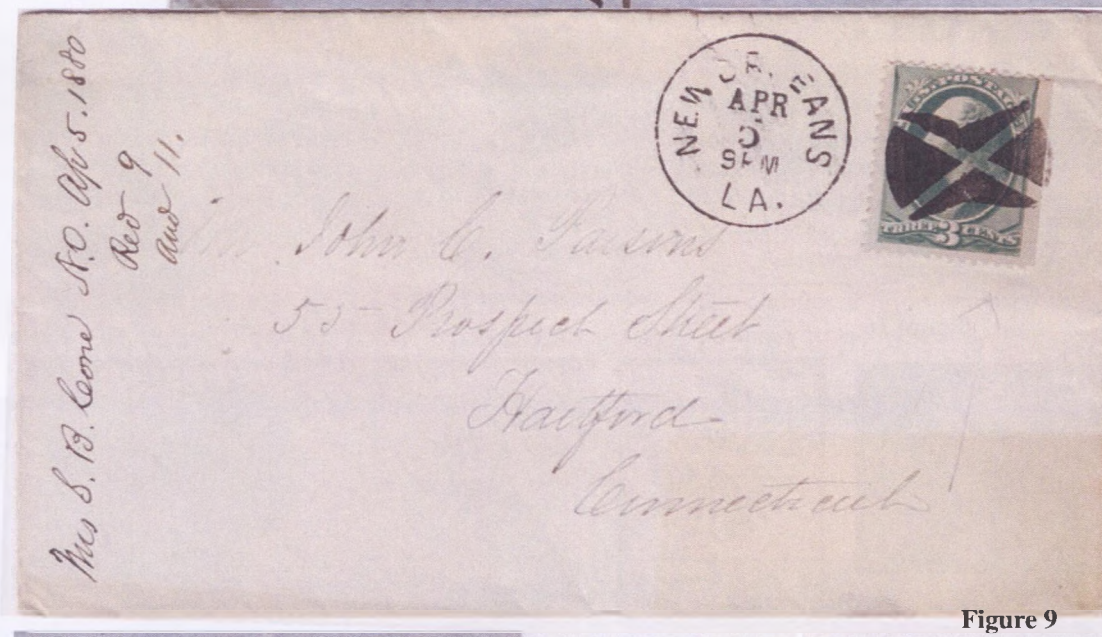 Mrs S. B. Cone N.O. Ap 5. 1880
Red 9
And 11.
NEW ORLEANS
APR
5
9PM
LA.
U.S. POSTAGE
THREE 3 CENTS
John C. Parsons
55 Prospect Street
Hartford
Connecticut
Figure 9